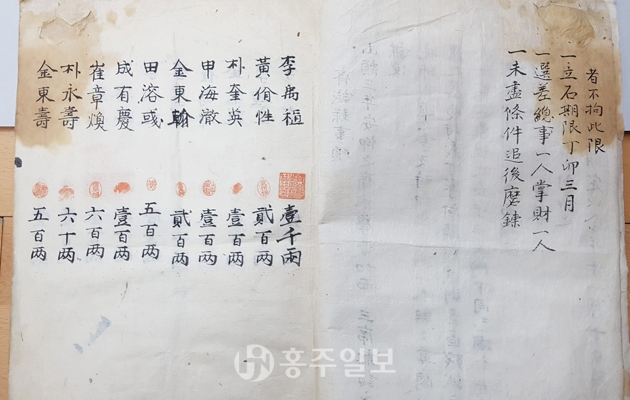 者不拘此限
一立石期限丁卯三月
一選差總事一人掌財一人
一未盡條件追後磨鍊
李禹樞 壹千兩
黃佾性 貳百兩
朴奎英 壹百兩
申海澈 壹百兩
金東翰 貳百兩
田溶彧 五百兩
成有慶 壹百兩
崔章煥 六百兩
朴永壽 六十兩
金東壽 五百兩
홍주일보